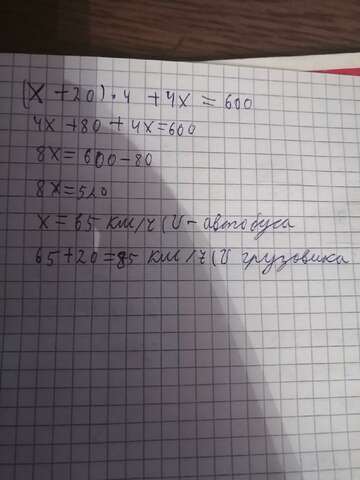 (x + 20) · 4 + 4x = 600
4x + 80 + 4x = 600
8x = 600 - 80
8x = 520
x = 65 км/ч (V - автобуса
65 + 20 = 85 км/ч (V грузовика